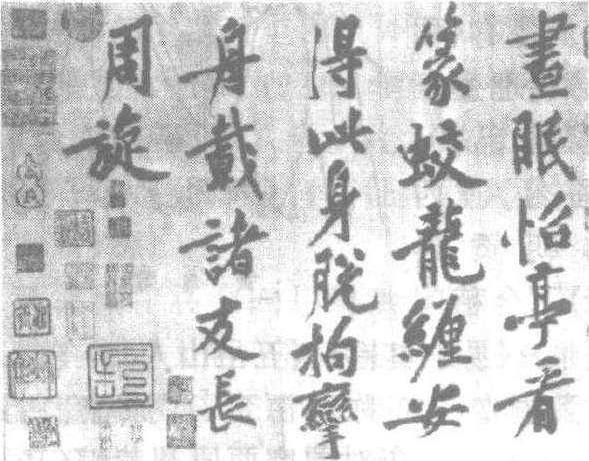 晝眠怡亭看
篆蛟龍纏安
得此身脱拘攣
舟載諸友長
周旋